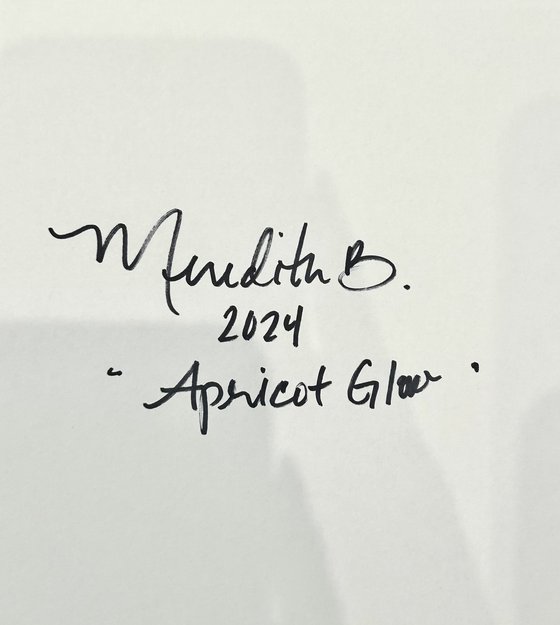 Meredith B.
2024
"Apricot Glow"